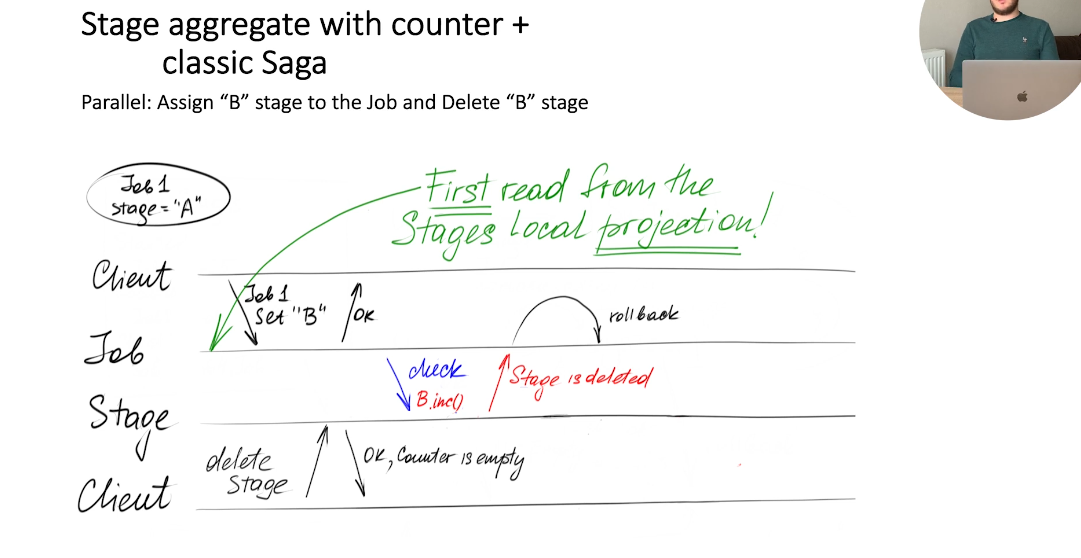 Stage aggregate with counter +
classic Saga
Parallel: Assign “B” stage to the Job and Delete “B” stage
Job 1
Stage = "A"
First read from the
Stages local projection!
Client
Job 1
Set "B"
OK
rollback
Job
check
B.inc()
Stage is deleted
Stage
delete
Stage
OK, Counter is empty
Client